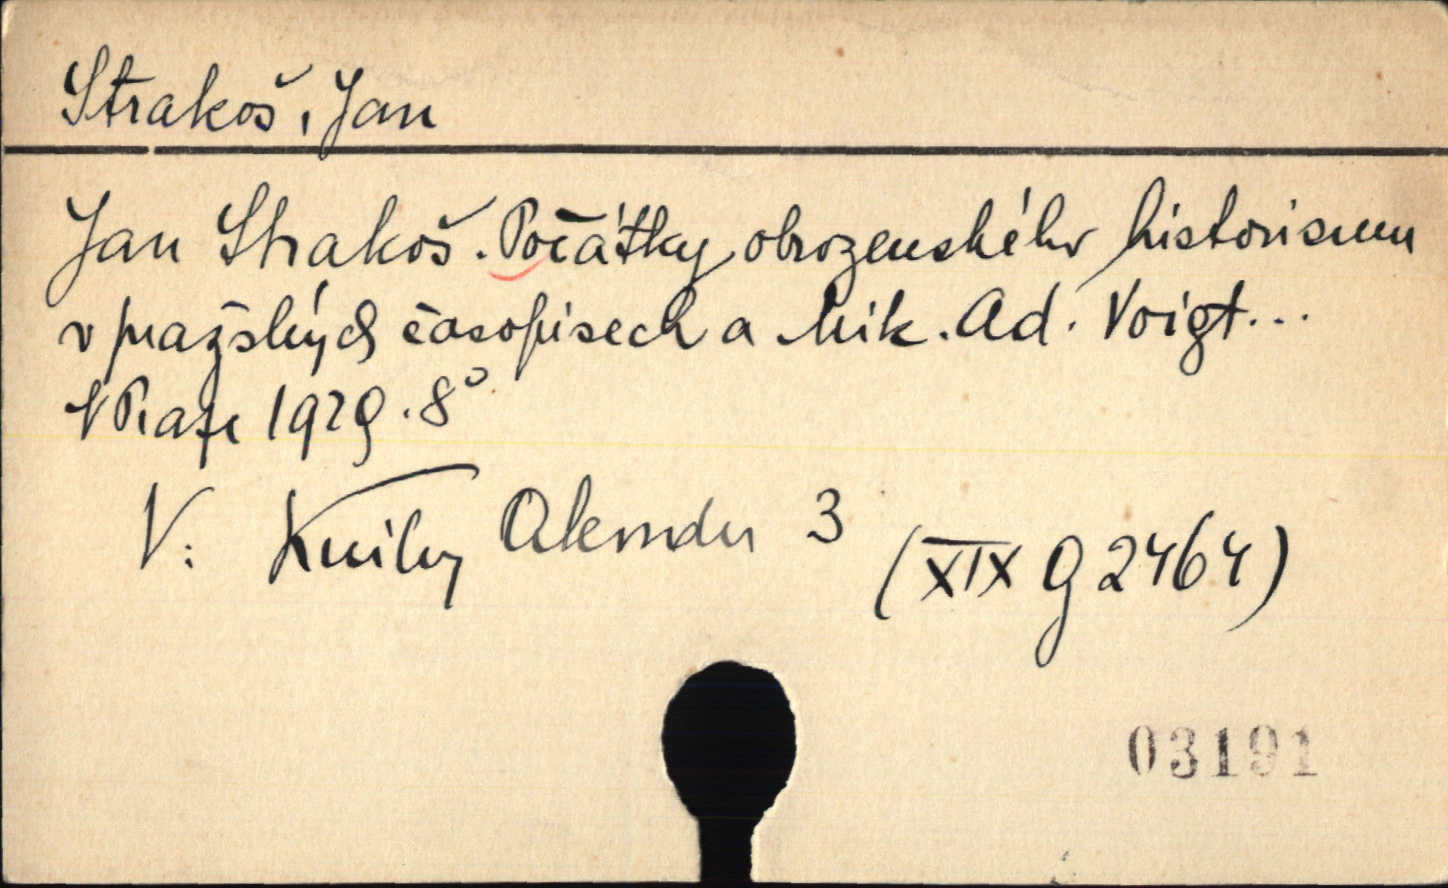 Strakoš, Jan
Jan Strakoš. Počátky obrozenského historismu
v pražských časopisech a Mik. Ad. Voigt...
V Praze 1929. 8°
V: Knihy Akordu 3
(XIX G 2464)
03191